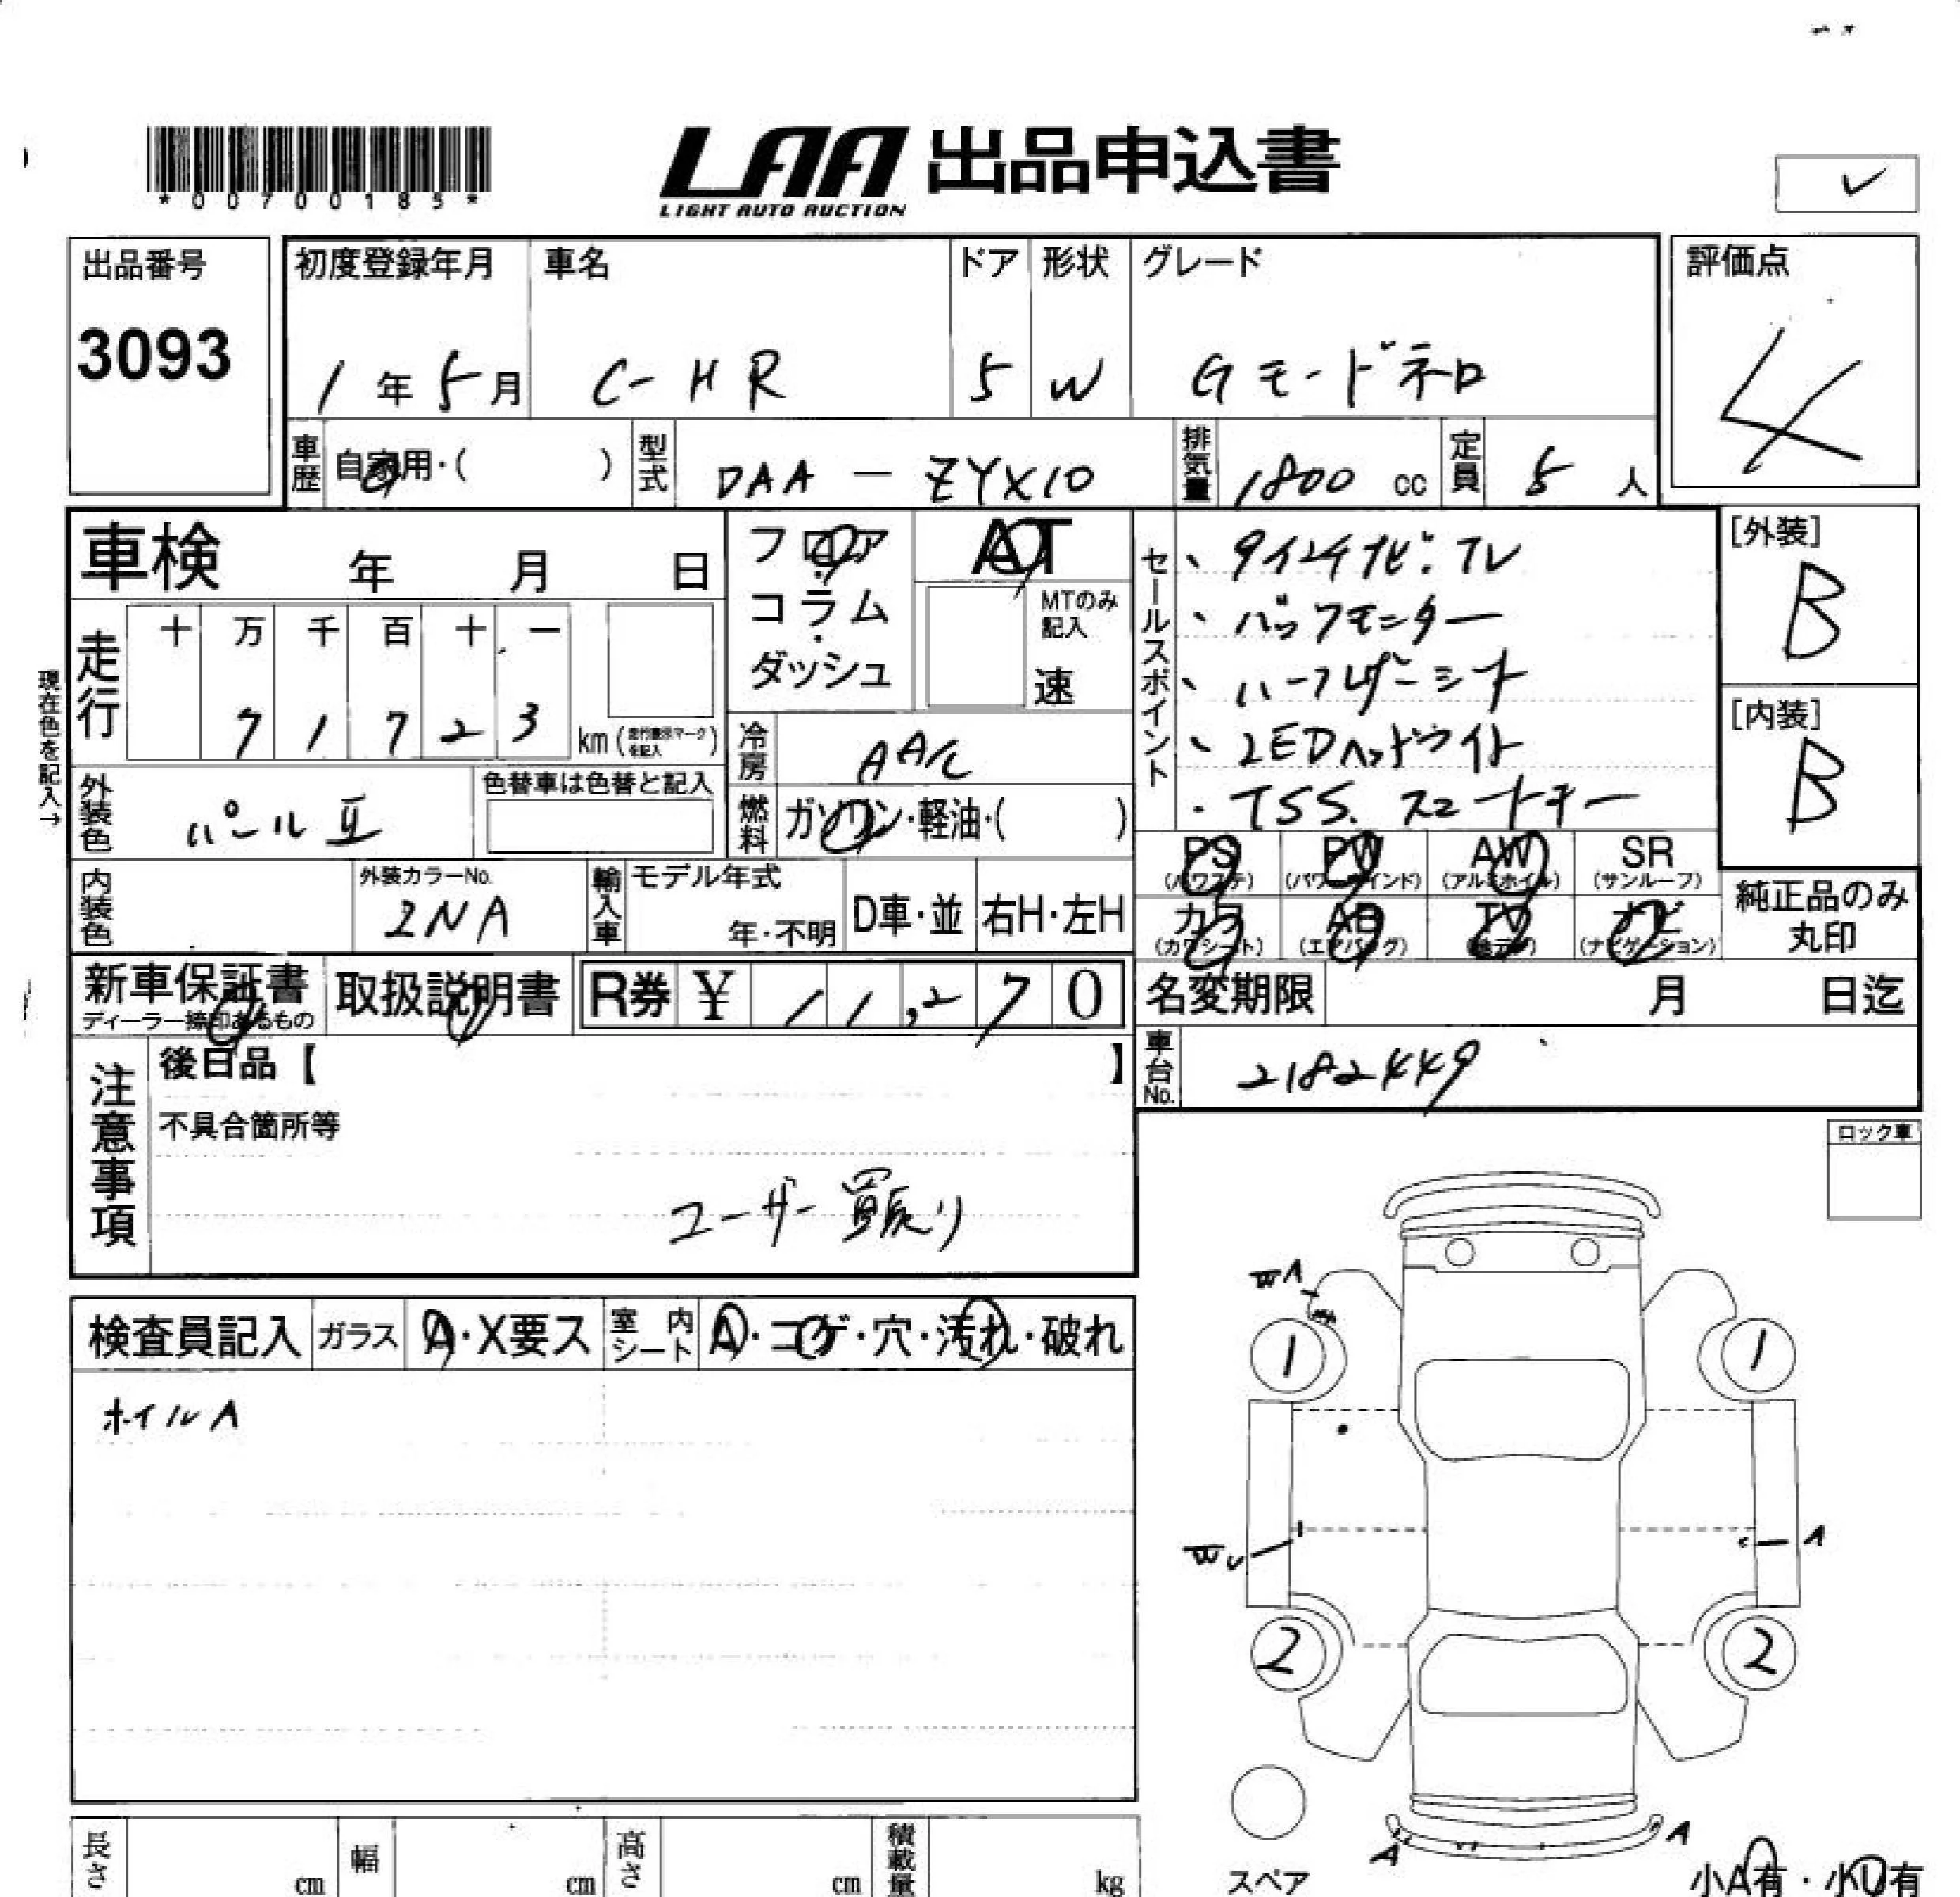 *00700185*
LAA 出品申込書
LIGHT AUTO AUCTION
✓
出品番号
3093
初度登録年月
1年5月
車名
C-HR
ドア
5
形状
W
グレード
Gモードネロ
評価点
4
車歴 自家用・( )
型式 DAA-ZYX10
排気量 1800 cc
定員 5人
車検 年 月 日
フロア・コラム・ダッシュ
AT
MTのみ記入
速
セールスポイント
・9インチナビ・TV
・バックモニター
・ハーフレザーシート
・LEDヘッドライト
・TSS.スマートキー
[外装]
B
[内装]
B
現在色を記入→
走行
十 万 千 百 十 一
7 1 7 2 3
km (走行表示マークを記入)
冷房 AA/C
燃料 ガソリン・軽油・( )
外装色 パールⅡ
色替車は色替と記入
内装色
外装カラーNo.
2NA
輸入車
モデル年式
年・不明
D車・並
右H・左H
PS (パワステ)
PW (パワーウインド)
AW (アルミホイル)
SR (サンルーフ)
カワ (カワシート)
AB (エアバッグ)
TV (地デジ)
ナビ (ナビゲーション)
純正品のみ丸印
新車保証書
ディーラー締印あるもの
取扱説明書
R券 ¥ 11,270
名変期限 月 日迄
車台No. 2182449
注意事項
後日品【 】
不具合箇所等
ユーザー買取り
ロック車
検査員記入
ガラス A・X要ス
室内シート A・コゲ・穴・汚れ・破れ
ホイルA
WA
1
1
WU
A
2
2
A
A
スペア
小A有・小U有
長さ cm
幅 cm
高さ cm
積載量 kg